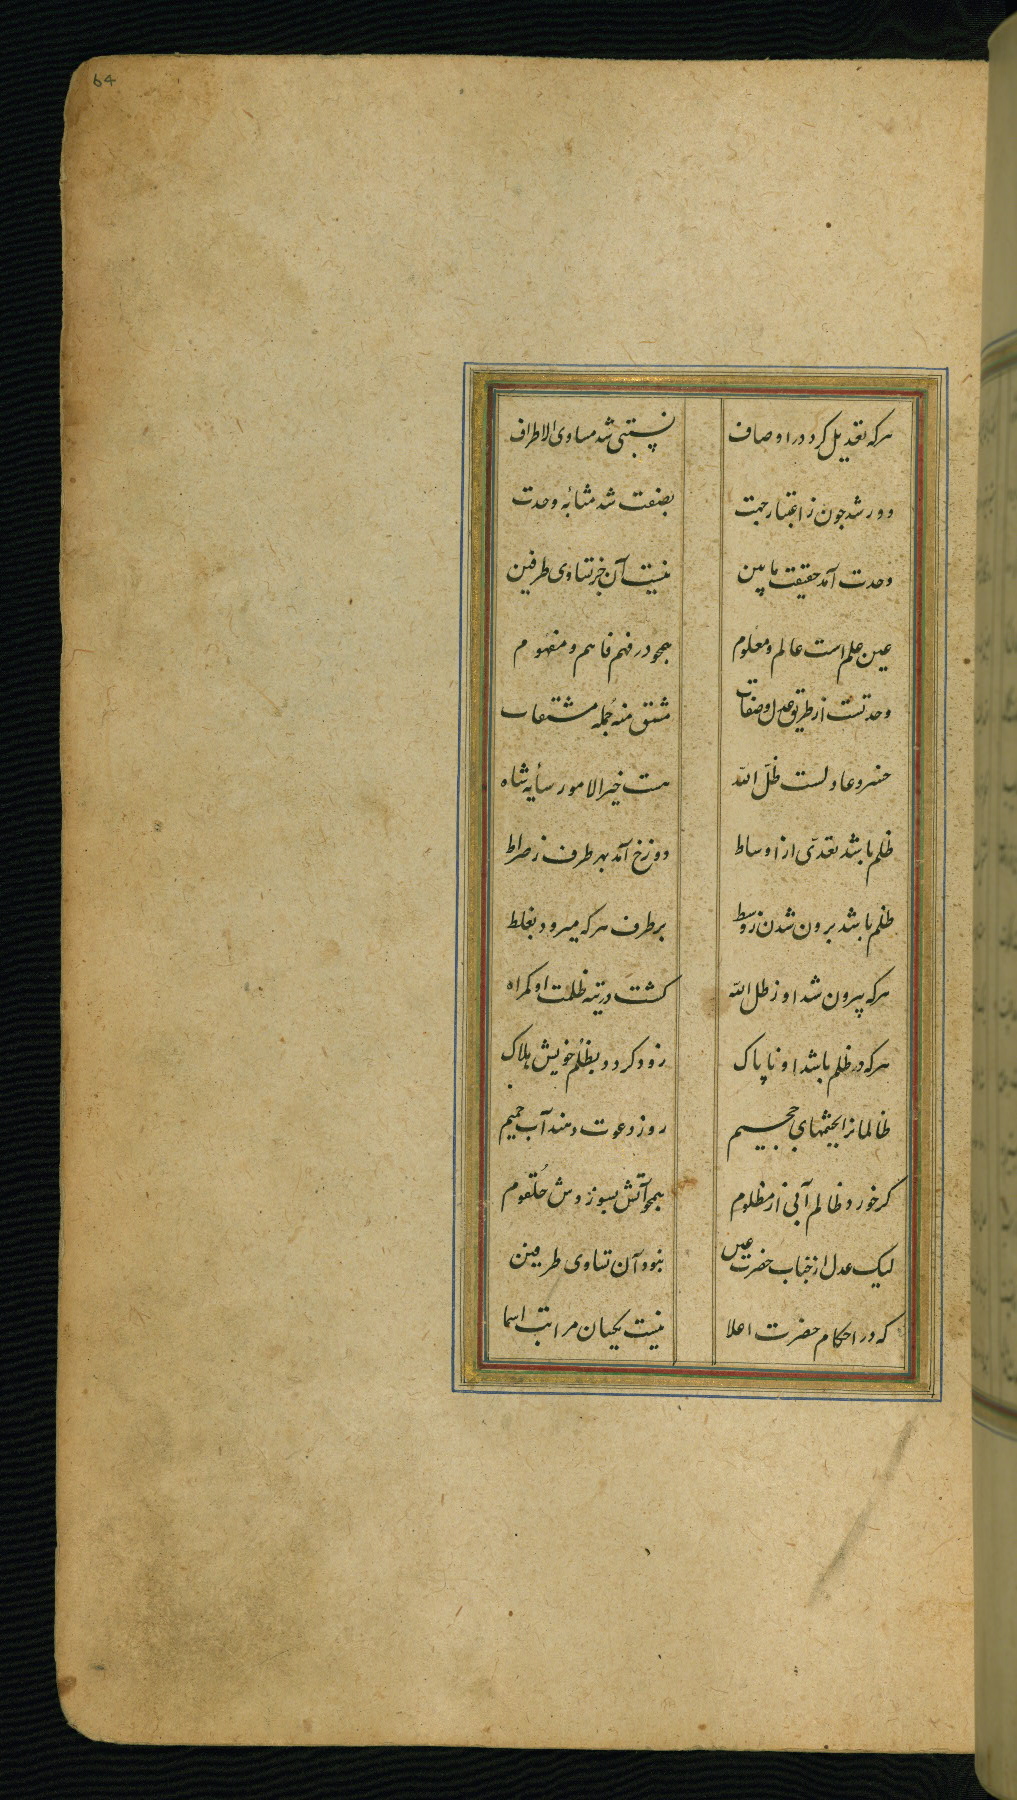 64
هرکه تعدیل کرد در اوصاف نسبتی شد مساوی الاطراف
دور شد چون ز اعتبار جهت بصفت شد مشابه وحدت
وحدت آمد حقیقت مابین نیست آن خبر تساوی طرفین
عین علم است عالم و معلوم همچو در فهم فاهم و مفهوم
وحدتست از طریق عدل وصفات مشتق منه جمله مشتقات
خسرو عادلست ظلّ الله هست خیر الامور سایه شاه
ظلم باشد تعدّی از اوساط دوزخ آمد بهر طرف ز صراط
ظلم باشد برون شدن ز وسط بر طرف هرکه میرود بغلط
هرکه بیرون شد او ز ظل الله گشت در تیه ظلمت او گمراه
هرکه در ظلم باشد او ناپاک زود گردد بظلم خویش هلاک
ظالمانرا جحیم روز دعوت دهند آب حمیم
گر خورد ظالم آبی از مظلوم همچو آتش بسوزدش حُلقوم
لیک عدل از جناب حضرت عین نبود آن تساوی طرفین
که در احکام حضرت اعلا نیست یکسان مراتب اسما